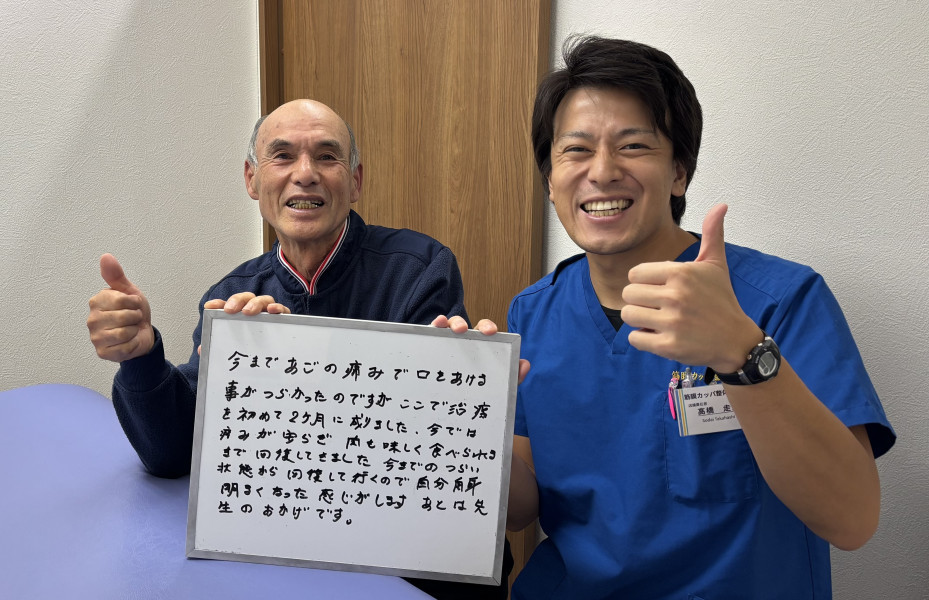 今まであごの痛みで口をあける
事がつらかったのですがここで治療
を初めて2ヶ月に成りました、今では
痛みが安らぎ 肉も味しく食べられる
まで回復してきました 今までのつらい
状態から回復して行くので自分自身
明るくなった感じがします あとは先
生のおかげです。
筋膜カッパ整体
高橋 走